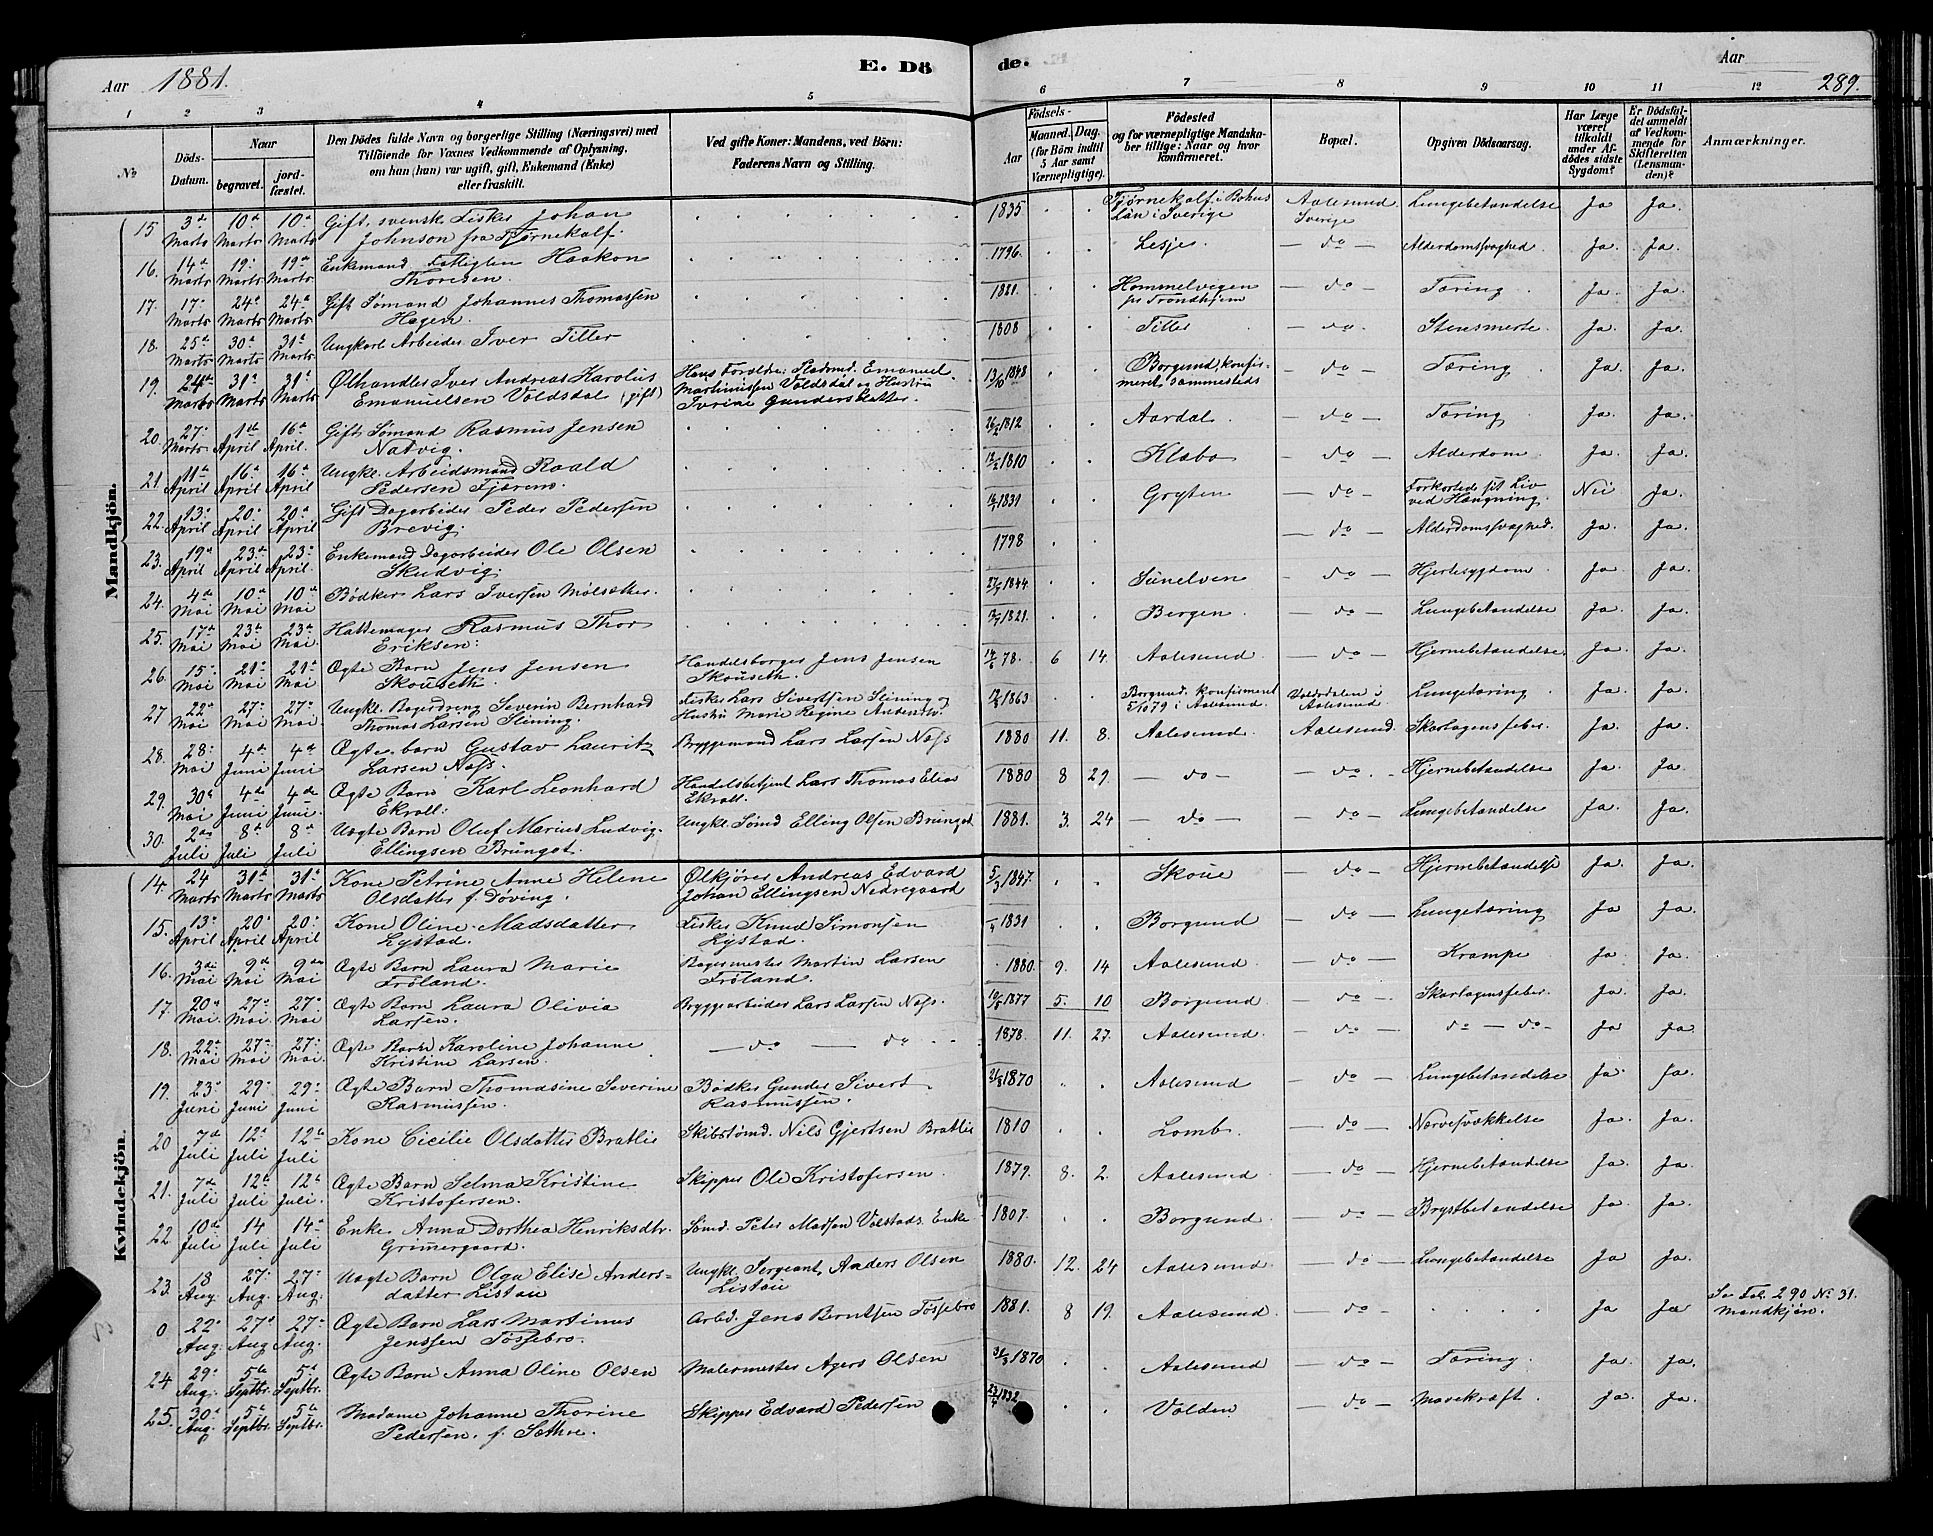 Aar 1881.
E. Dö
de.
Aar
289.
1 2 3 4 5 6 7 8 9 10 11 12
No
Döds-Datum.
Naar
begravet.
jordfæstet.
Den Dödes fulde Navn og borgerlige Stilling (Næringsvei) med
Tilföiende for Voxnes Vedkommende af Oplysning,
om han (hun) var ugift, gift, Enkemand (Enke)
eller fraskilt.
Ved gifte Koner: Mandens, ved Börn:
Faderens Navn og Stilling.
Födsels-
Aar
Maaned. Dag.
(for Börn indtil
5 Aar samt
Værnepligtige).
Födested
og for værnepligtige Mandskaber tillige: Naar og hvor
konfirmeret.
Bopæl.
Opgiven Dödsaarsag.
Har Læge været tilkaldt under Afdödes sidste Sygdom?
Er Dödsfaldet anmeldt af Vedkommende for Skifteretten (Lensmanden)?
Anmærkninger.
Mandkjön.
15. 3de Marts 10de Marts 10de Marts Gift, svensk Fisker Johan Johnson fra Tjörnekalf. 1835 Tjörnekalf i Bohus Län i Sverige Aalesund Sverige Lungebetændelse Ja Ja.
16. 14de Marts 19de Marts 19de Marts Enkemand, Fattiglem Haakon Thoresen. 1796. Lesje. do Alderdomssvaghed. Ja. Ja.
17. 17de Marts 24de Marts 24de Marts Gift Sömand Johannes Thomassen Hagen. 1821. Hommelvigen pr Trondhjem do Tæring Ja. Ja.
18. 25de Marts 30de Marts 31de Marts Ungkarl Arbeider Iver Tiller 1808 Tiller do. Stensmerte. Ja. Ja
19. 24de Marts 31de Marts 31de Marts Ølhandler Iver Andreas Karolius Emanuelsen Voldsdal (gift) Hans Foreldre: Pladsmd. Emanuel Martinussen Voldsdal og Hustru Ivrine Gundersdatter. 13/10 1848 Borgund, konfirmeret sammesteds do Tæring. Ja. Ja.
20. 27de Marts 1ste April 16de April. Gift Sömand Rasmus Jensen Natvig. 26/2 1812 Aardal. do Tæring Ja. Ja.
21. 11te April 16de April 16de April Ungkl. Arbeidsmand Roald Pedersen Fjærem. 1810 Klæbo do Alderdom. Ja. Ja.
22. 13de April 20de April 20de April Gift Dagarbeider Peder Pedersen Brevig. 1831 Gryten do Forkortede sit Liv ved Hængning. Nei Ja.
23. 19de April 23de April 23de April. Enkemand, Dagarbeider Ole Olsen Skudvig. 1798 do Alderdomssvaghed. Ja. Ja.
24. 4de Mai 10de Mai 10de Mai Bödker Lars Iversen Molsæther. 1844. Sunelven do Hjertesygdom. Ja. Ja.
25. 17de Mai 23de Mai 23de Mai Hattemager Rasmus Thor Eriksen. 1821. Bergen. do Lungebetændelse Ja. Ja.
26. 15de Mai 21de Mai 21de Mai Ægte Barn Jens Jensen Skouseth. Handelsborger Jens Jensen Skouseth. 78. 6 14. Aalesund do Hjernebetændelse Ja. Ja.
27 22de Mai 27de Mai 27de Mai. Ungkl. Bagerdreng Severin Bernhard Thomas Larsen Slining. Fisker Lars Sivertsen Slining og Hustru Marie Regine Andersdtr. 1863 Borgund, konfirmeret 5/10 79 i Aalesund. Voldsdalen i Aalesund. Lungetæring. Ja. Ja.
28. 28de Mai 4de Juni 4de Juni Ægte barn Gustav Lauritz Larsen Næss. Bryggemand Lars Larsen Næss 1880 11. 8. Aalesund. Aalesund. Skarlagensfeber. Ja. Ja.
29. 30de Mai 4de Juni 4de Juni. Ægte Barn Karl Leonhard Ekroll. Handelsbetjent Lars Thomas Elias Ekroll. 1880 8 29. do do. Hjernebetændelse Ja. Ja.
30. 2den Juli 8de Juli 8de Juli Uægte Barn Oluf Marius Ludvig Ellingsen Brunget. Ungkl. Sömd Elling Olsen Brunget. 1881. 3. 24 do do Lungebetændelse Ja. Ja.
Kvindekjön.
14. 24 Marts 31de Marts 31de Marts Kone Petrine Anne Helene Olsdatter f. Döving. Ølkjörer Andreas Edvard Johan Ellingsen Nedregaard 5/3 1847. Skoue do Hjernebetændelse Ja. Ja.
15. 13de April 20de April 20de April Kone Oline Madsdatter Lystad. Fisker Knud Simonsen Lystad. 1831 Borgund do Lungetæring Ja Ja.
16. 3die Mai 9de Mai 9de Mai Ægte Barn Laura Marie Fröland. Bagermester Martin Larsen Fröland. 1880. 9. 14 Aalesund do Krampe Ja Ja.
17. 20de Mai. 27de Mai. 27de Mai Ægte Barn Laura Olivia Larsen. Bryggearbeider Lars Larsen Næss. 1877 5. 10 Borgund do. Skarlagensfeber. Ja Ja.
18. 22de Mai 27de Mai 27de Mai. Ægte Barn Karoline Johanne Kristine Larsen. do do 1878. 11. 27. Aalesund. do do do Ja Ja
19. 23de Juni 29de Juni 29de Juni Ægte Barn Thomasine Severine Rasmussen. Bödker Gunder Sivert Rasmussen. 21/8 1870 Aalesund do Lungebetændelse Ja. Ja.
20 7de Juli 12te Juli 12te Juli Kone Cicilie Olsdatter Bratlie Skibstömd. Nils Gjertsen Bratlie 1810 Lomb. do Nervesvækkelse Ja. Ja.
21. 7de Juli 12te Juli 12te Juli. Ægte Barn Selma Kristine Kristofersen. Skipper Ole Kristofersen. 1879. 8. 2. Aalesund do Hjernebetændelse Ja. Ja.
22. 10de Juli 14 Juli 14de Juli Enke Anna Dorthea Henriksdtr. Grimergaard. Sömd. Peter Madsen Volstads Enke 1807. Borgund. do Brystbetændelse Ja. Ja.
23. 18 Aug. 27de Aug. 27de Aug. Uægte Barn Olga Elise Andersdatter Listau Ungkl. Sergeant, Anders Olsen Listau 1880. 12. 24 Aalesund do Lungebetændelse Ja Ja.
0 22de Aug. 27de Aug. 27de Aug. Ægte Barn Lars Martinus Jenssen Tössebro. Arbd. Jens Berntsen Tössebro 1881. 8 19. Aalesund. do Ja Ja Se Fol. 290 No 31. Mandkjön.
24 29de Aug. 5te Septbr. 5te Septbr. Ægte Barn Anna Oline Olsen Malermester Agers Olsen 31/3 1870 Aalesund do Tæring. Ja. Ja.
25. 30de Aug. 5te Septbr. 5te Septbr. Madame Johanne Thorine Pedersen, f. Sæthre. Skipper Edvard Pedersen 1832 Volden do Mavekræft Ja. Ja.